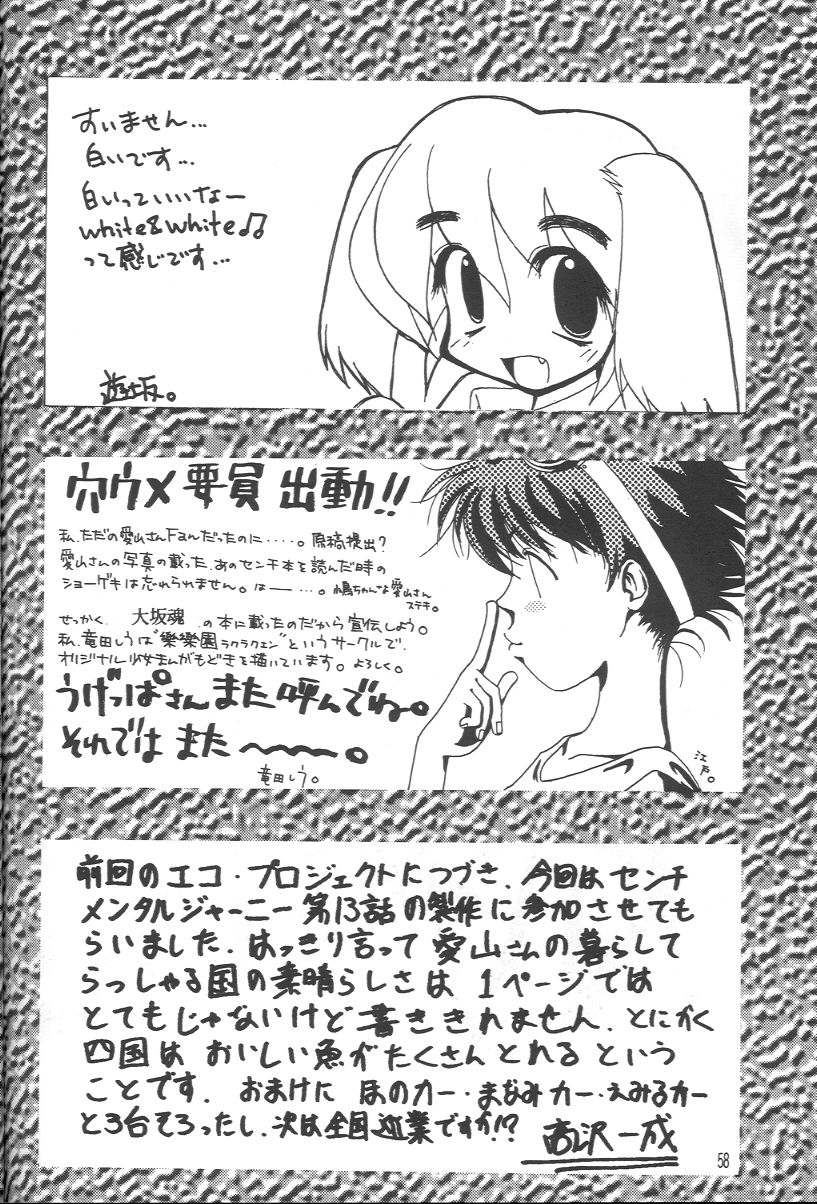 すいません…
白いです…
白いっていいなー
white&white♫
って感じです…
遊坂。
穴ウメ要員 出動!!
私、ただの愛山さんFanだったのに‥‥‥。原稿提出?
愛山さんの写真の載った、あのセンチ本を読んだ時の
ショーゲキは忘れられません。は――…。
ちゃんな愛山さん
ステキ。
せっかく 大坂魂 の本に載ったのだから宣伝しよう。
私、竜田しうは"樂樂園ラクラクエン"というサークルで、
オリジナル少女まんがもどきを描いています。よろしく。
うげっぱさんまた呼んでね。
それではまた〜〜〜。
竜田しう。
江戸。
前回のエコ・プロジェクトにつづき、今回はセンチ
メンタルジャーニー第13話の製作に参加させても
らいました。はっきり言って愛山さんの暮らして
らっしゃる国の素晴らしさは1ページでは
とてもじゃないけど書ききれません。とにかく
四国はおいしい魚がたくさんとれるという
ことです。おまけにほのカー・まなみカー・えみるカー
と3台そろったし、次は全国巡業ですか!?
高沢一成
58